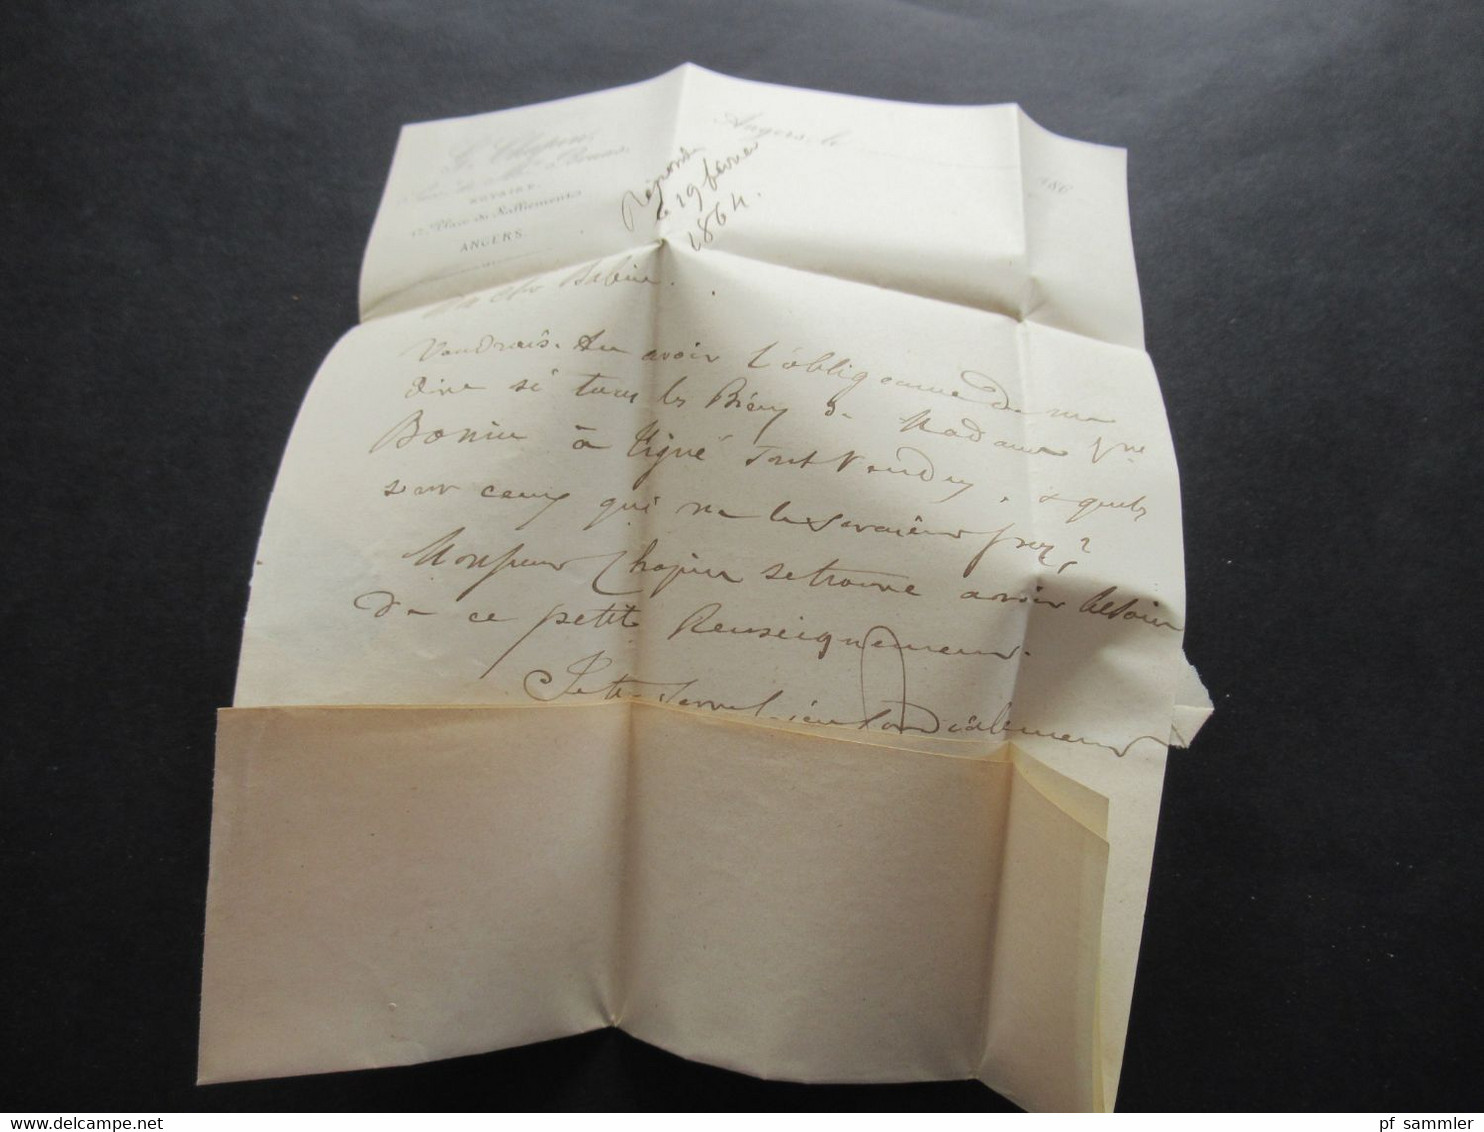 NOTAIRE
Place du Ralliement
ANGERS
Angers, le
186
Répondu
le 19 février
1864.
Voudrais-tu avoir l'obligeance de me
dire si tous les Biens de Madame Vve
à Tigné sont vendus, & quels
sont ceux qui ne le seraient pas?
Monsieur Chapin se trouve avoir besoin
de ce petit Renseignement.
Je te serre bien cordialement
pf sammler